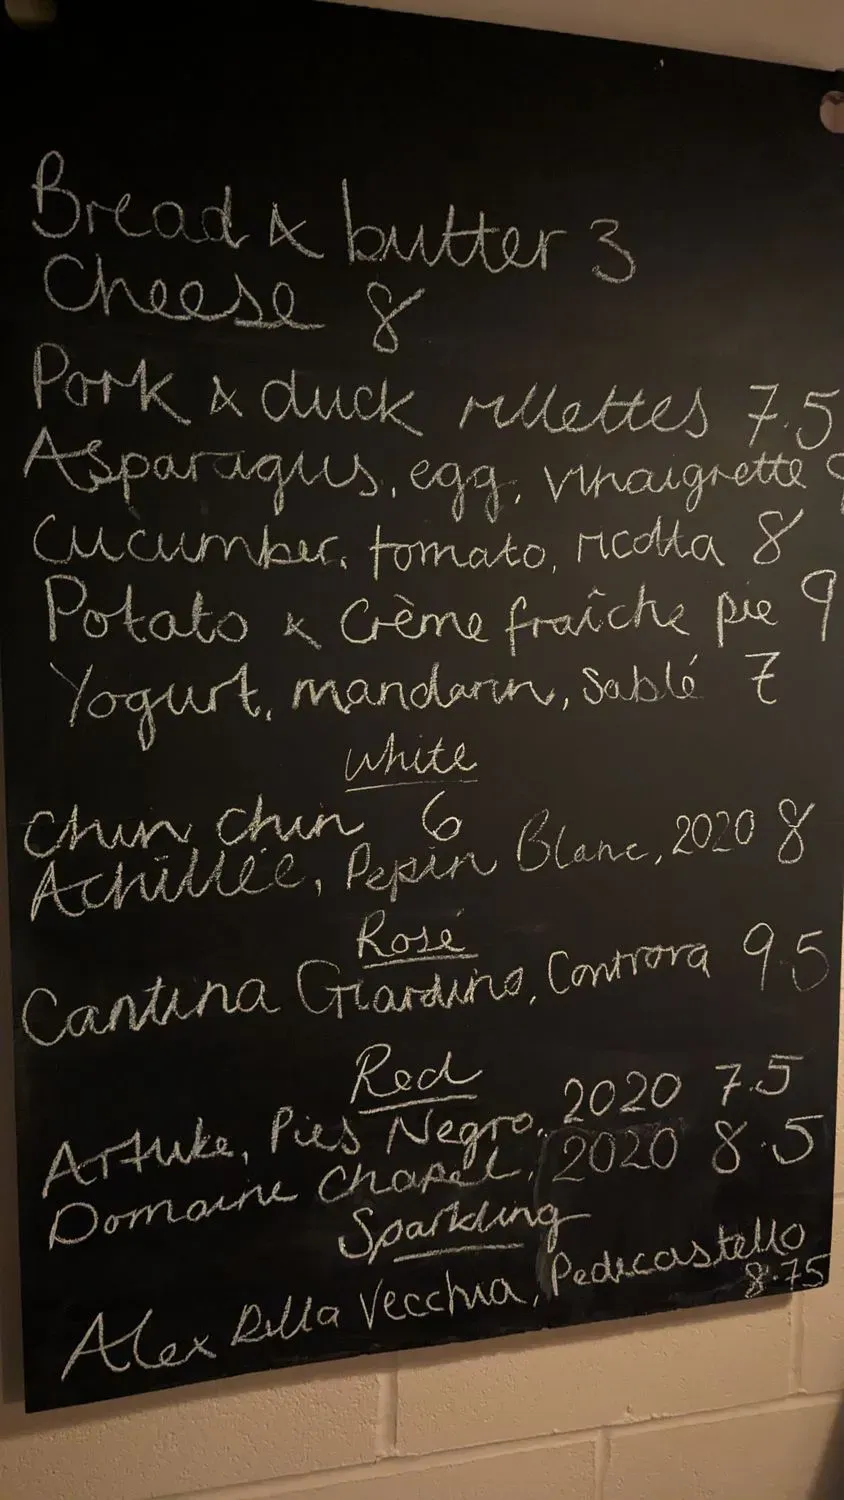 Bread & butter 3
Cheese 8
Pork & duck rillettes 7.5
Asparagus, egg, vinaigrette
Cucumber, tomato, ricotta 8
Potato & Crème fraîche pie 9
Yogurt, mandarin, Sablé 7
White
Chin chin 6
Achillée, Pepin Blanc, 2020 8
Rosé
Cantina Giardino, Controra 9.5
Red
Artuke, Pies Negro, 2020 7.5
Domaine Chapel, 2020 8.5
Sparkling
Alex Della Vecchia, Pedecastello
8.75